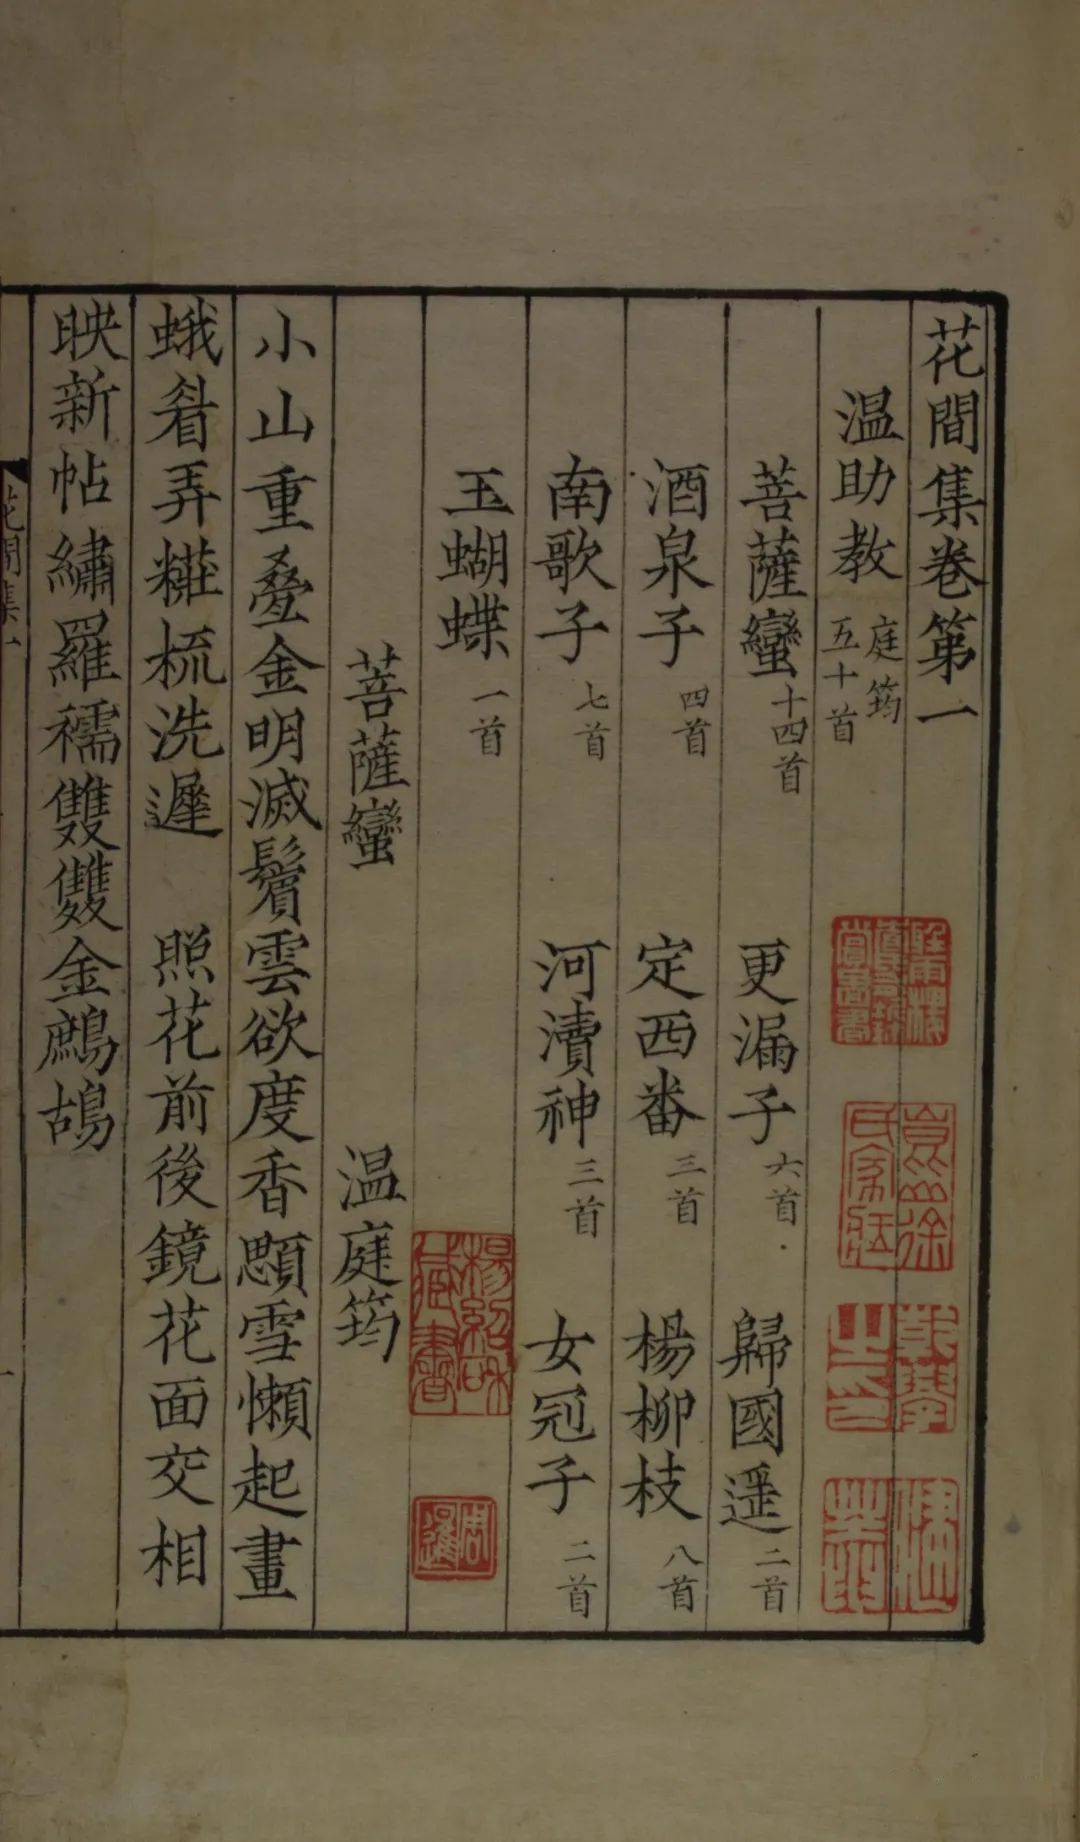 花間集卷第一
温助教 庭筠 五十首
菩薩蠻 十四首 更漏子 六首 歸國遥 二首
酒泉子 四首 定西番 三首 楊柳枝 八首
南歌子 七首 河瀆神 三首 女冠子 二首
玉蝴蝶 一首
菩薩蠻 温庭筠
小山重疊金明滅鬢雲欲度香顋雪懶起畫
蛾眉弄粧梳洗遲 照花前後鏡花面交相
映新帖繡羅襦雙雙金鷓鴣
花間集一
楊紹和藏書
周暹